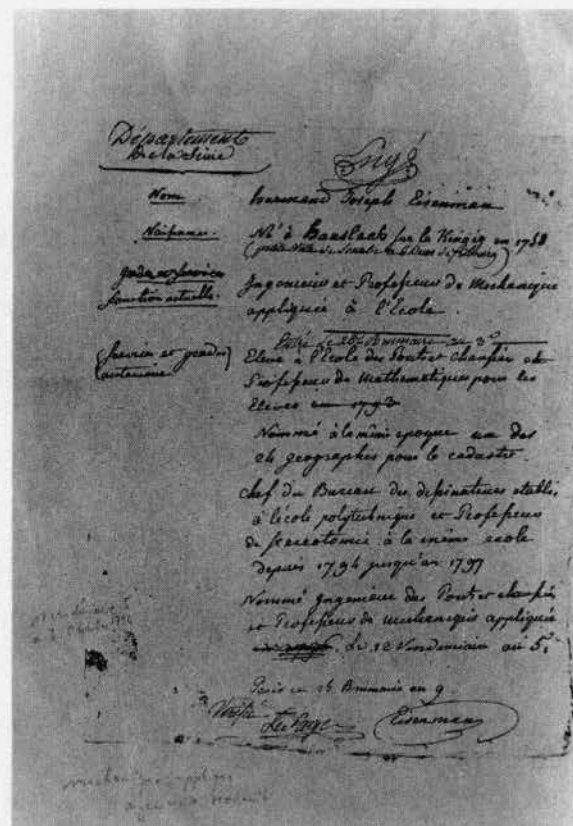 Département
De la Seine
Nom.
hermand Joseph Eisenman
Naissance.
Né à Haaslach sur la Kinzig en 1758
fonction actuelle.
Ingenieur et Professeur de Mechanique
appliquée à l'Ecole.
Services et grades
Eleve à l'Ecole des Ponts et chaussées et
Professeur de Mathematiques pour les
Eleves en 1793
Nommé à la même epoque un des
24 geographes pour le cadastre.
Chef du Bureau des dessinateurs établi
à l'école polytechnique et Professeur
de stereotomie à la même école
depuis 1794 jusqu'en 1797
Nommé Ingenieur des Ponts et chaussées
et Professeur de mechanique appliquée
le 12 Vendemiaire an 5.
Paris ce 24 Brumaire an 9.
Vérifié
Eisenman